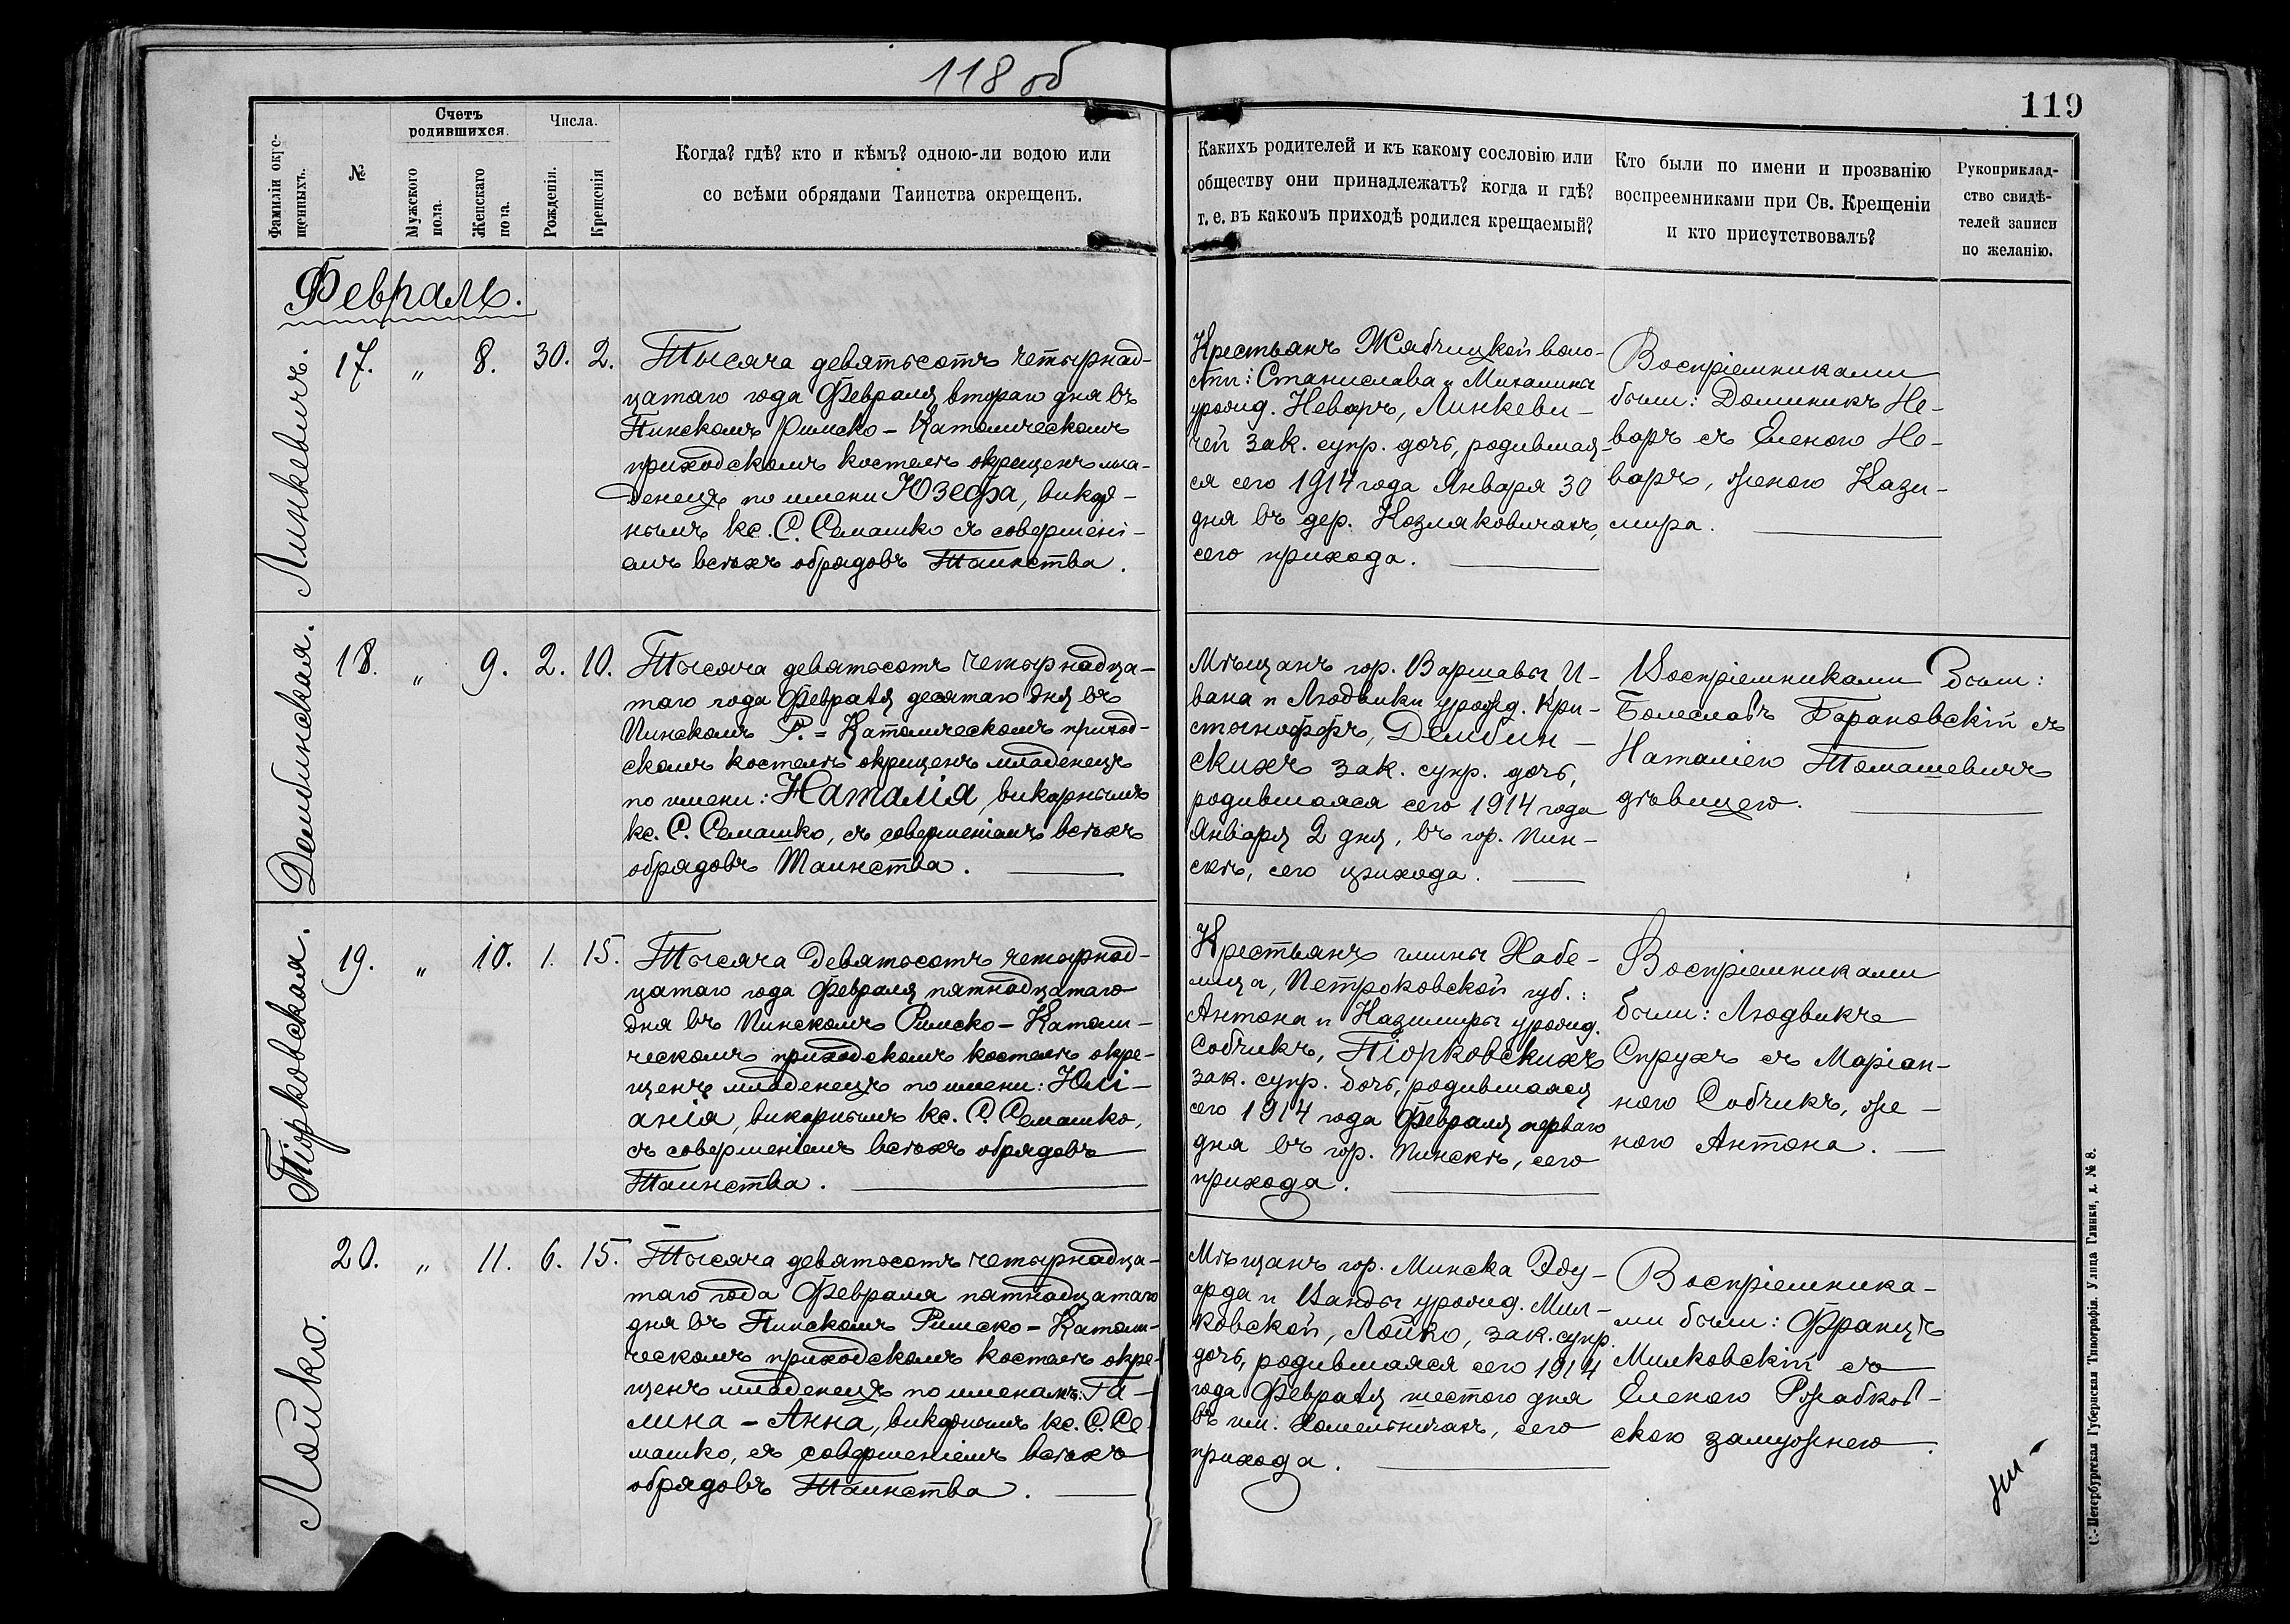 118 об
119
Фамиліи окре-
щенныхъ.
№
Счетъ
родившихся.
Мужского
пола.
Женскаго
пола.
Числа.
Рожденія.
Крещенія
Когда? гдѣ? кто и кѣмъ? одною-ли водою или
со всѣми обрядами Таинства окрещенъ.
Какихъ родителей и къ какому сословію или
обществу они принадлежатъ? когда и гдѣ?
т. е. въ какомъ приходѣ родился крещаемый?
Кто были по имени и прозванію
воспреемниками при Св. Крещеніи
и кто присутствовалъ?
Рукоприклад-
ство свидѣ-
телей записи
по желанію.
Февраль.
Линкевичъ.
17. „ 8. 30. 2.
Тысяча девятьсотъ четырнад-
цатаго года Февраля втораго дня въ
Пинскомъ Римско-Католическомъ
приходскомъ костелѣ окрещенъ мла-
денецъ по имени Юзефа, викар-
нымъ кс. С. Семашко съ совершені-
емъ всѣхъ обрядовъ Таинства.
Крестьянъ Жабчицкой воло-
сти: Станислава и Михалины
урожд. Неваръ, Линкеви-
чей зак. супр. дочь, родившая-
ся сего 1914 года Января 30
дня въ дер. Козляковичахъ,
сего прихода.
Воспріемниками
были: Доминикъ Не-
варъ съ Еленою Не-
варъ, женою Кази-
мира.
Дембинская.
18. „ 9. 2. 10.
Тысяча девятьсотъ четырнадца-
таго года Февраля десятаго дня въ
Пинскомъ Р.=Католическомъ приход-
скомъ костелѣ окрещенъ младенецъ
по имени: Наталія, викарнымъ
кс. С. Семашко, съ совершеніемъ всѣхъ
обрядовъ Таинства.
Мѣщанъ гор. Варшавы И-
вана и Людвики урожд. Кри-
стофъ, Дембин-
скихъ зак. супр. дочь,
родившаяся сего 1914 года
Января 2 дня, въ гор. Пин-
скѣ, сего прихода.
Воспріемниками были:
Болеславъ Барановскій съ
Наталіею Томашевичъ
дѣвицею.
Піорковская.
19. „ 10. 1. 15.
Тысяча девятьсотъ четырнад-
цатаго года Февраля пятнадцатаго
дня въ Пинскомъ Римско-Католи-
ческомъ приходскомъ костелѣ окре-
щенъ младенецъ по имени: Юлі-
анія, викарнымъ кс. С. Семашко,
съ совершеніемъ всѣхъ обрядовъ
Таинства.
Крестьянъ гмины Хабе-
лица, Петроковской губ.:
Антона и Казимиры урожд.
Собчикъ, Піорковскихъ
зак. супр. дочь, родившаяся
сего 1914 года Февраля перваго
дня въ гор. Пинскѣ, сего
прихода.
Воспріемниками
были: Людвикъ
Спрухъ съ Маріан-
ною Собчикъ, же-
ною Антона.
Лойко.
20. „ 11. 6. 15.
Тысяча девятьсотъ четырнадца-
таго года Февраля пятнадцатаго
дня въ Пинскомъ Римско-Католи-
ческомъ приходскомъ костелѣ окре-
щенъ младенецъ по именамъ: Га-
лина-Анна, викарнымъ кс. С. Се-
машко, съ совершеніемъ всѣхъ
обрядовъ Таинства.
Мѣщанъ гор. Минска Эду-
арда и Ванды урожд. Мил-
ковской, Лойко, зак. супр.
дочь, родившаяся сего 1914
года Февраля шестого дня
въ им. Хомельничахъ, сего
прихода.
Воспріемника-
ми были: Францъ
Милковскій съ
Еленою Ржабков-
скою замужнею.
С.-Петербургская Губернская Типографія. Улица Глинки, д. № 8.